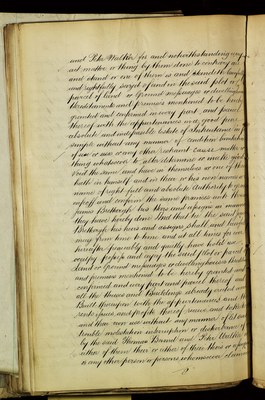 and Peter Walker for and notwithstanding any
act matter or thing by them done to contrary
and stand or one of them is and stands lawfully
and rightfully seized of and in the said plot or
parcel of Land or Ground messuages or dwellinghouses
Hereditaments and premises mentioned to be hereby
granted and confirmed and every part and parcel
thereof with the appurtenances as a good pure
absolute and indefeasible Estate of inheritance in fee
simple without any manner of condition limitation
of use or uses or any other restraint cause matter or
thing whatsoever to alter determine or make void
the same and have in themselves or one of them
hath in himself and in their or his own name or
names good right full and absolute Authority to grant
and confirm the same premises unto the said
James Bettough his Heirs and assigns in manner
they have hereby done And that he the said James
Bettough his heirs and assigns shall and lawfully
may from time to time and at all times forever
hereafter peaceably and quietly have hold use
occupy possess and enjoy the said plot or parcel
Land or Ground messuages or dwellinghouses Hereditaments
and premises mentioned to be hereby granted and
confirmed and every part and parcel thereof
all the Houses and Buildings already or to be
Built thereupon with the appurtenances and the
rents issues and profits thereof receive and take
and their own use without any manner of let suit
trouble molestation interruption or disturbance of
by the said Thomas Brand and Peter Walker
either of them their or either of their Heirs or assigns
or any other person or persons whomsoever claiming